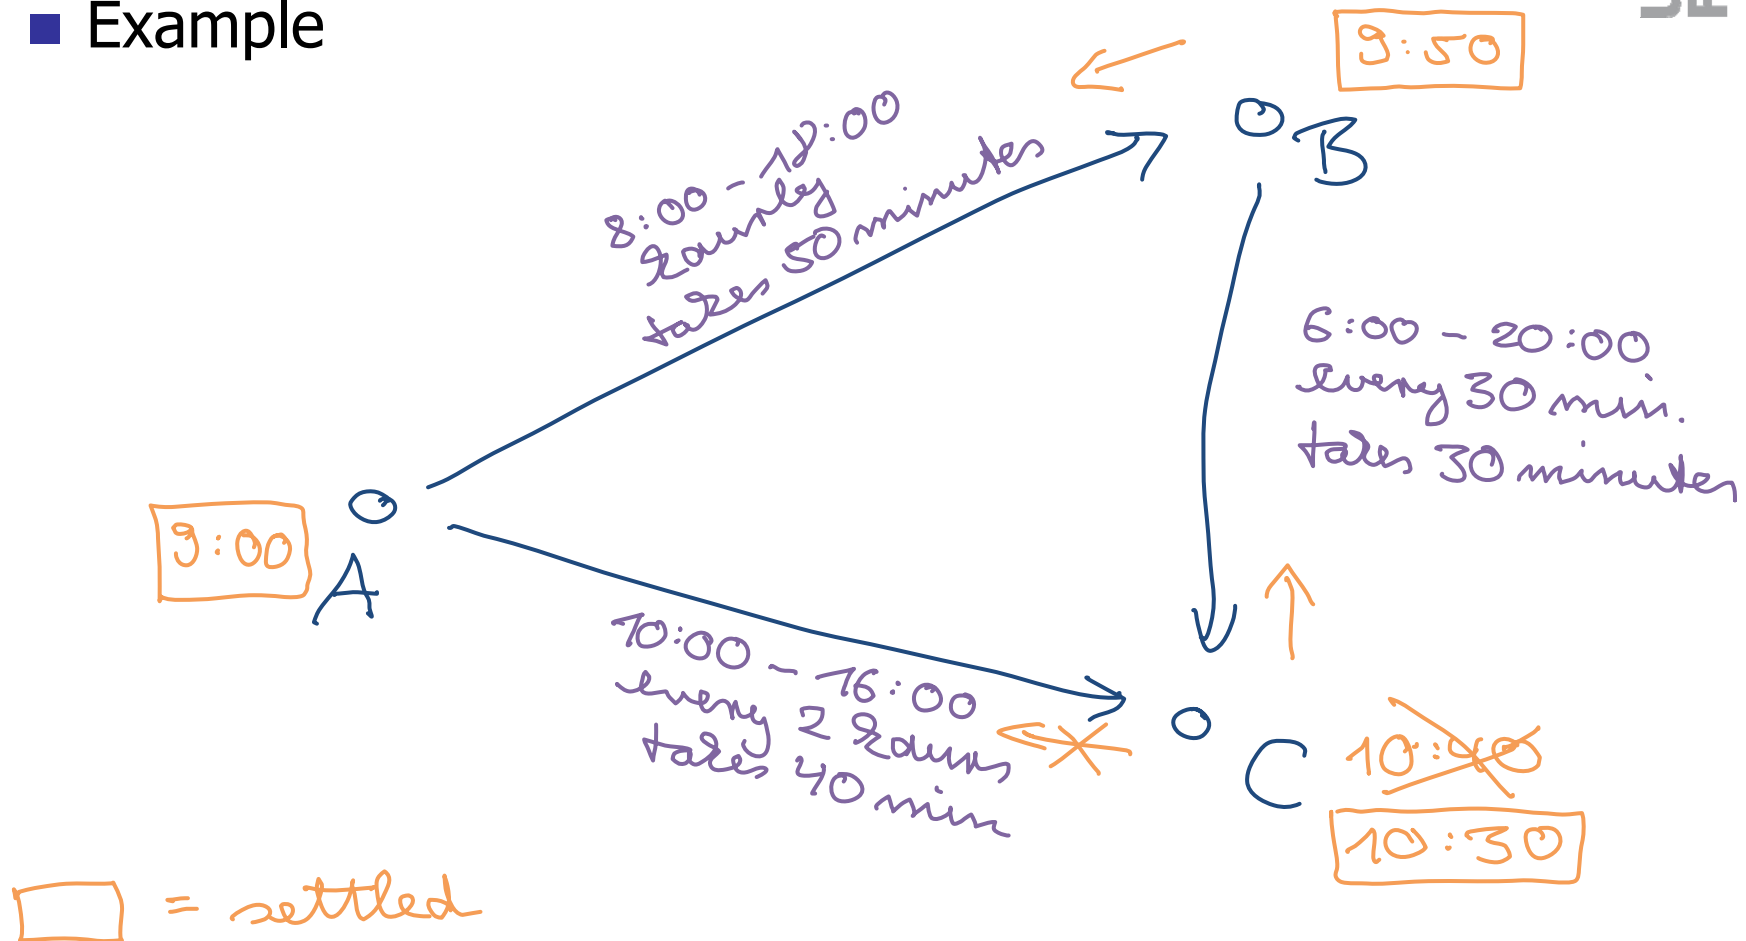 Example
9:50
8:00 - 18:00
hourly
takes 50 minutes
B
6:00 - 20:00
every 30 min.
takes 30 minutes
9:00
A
10:00 - 16:00
every 2 hours
takes 40 min
C
10:40
10:30
= settled